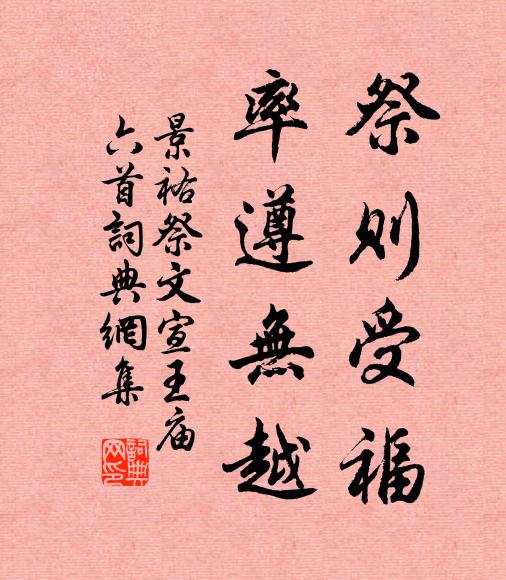 祭則受福
率遵無越
景祐祭文宣王庙
六首詞典網集
詞典
网印